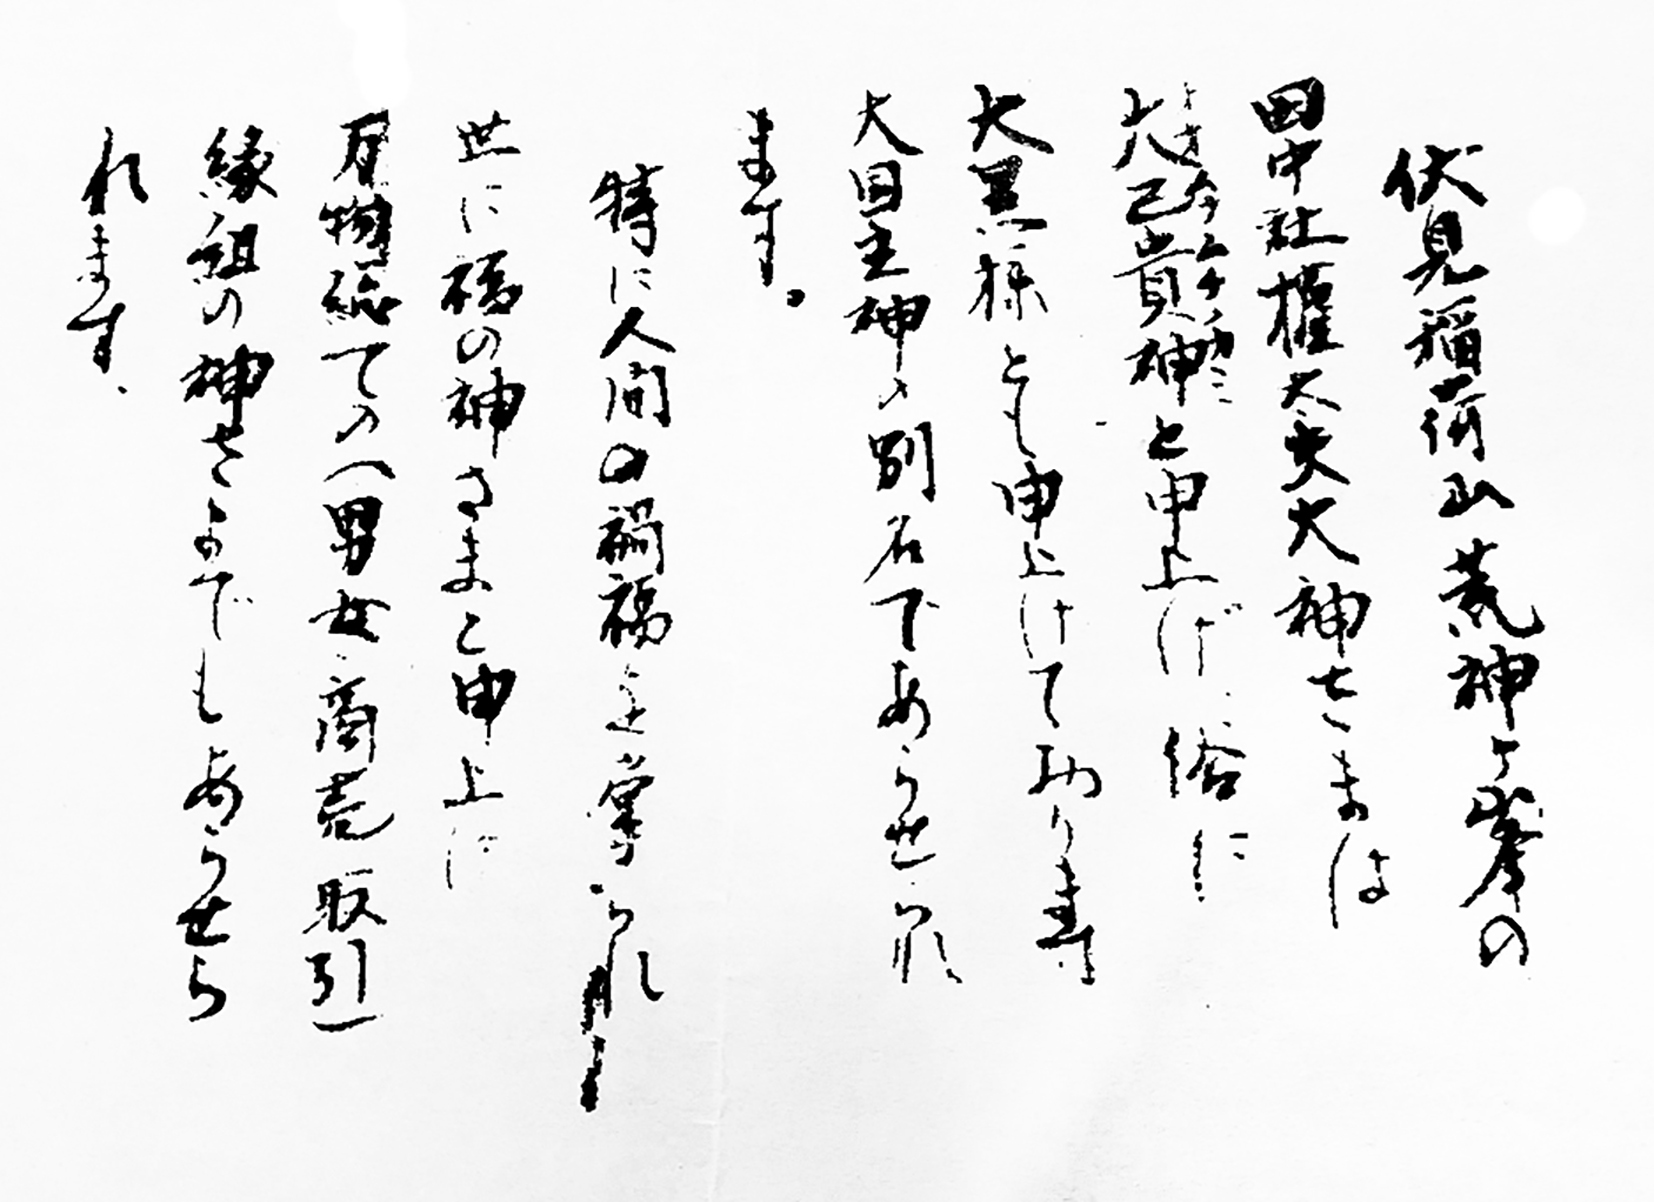 伏見稲荷山荒神ヶ峯の
田中社権太夫大神さまは
大己貴神と申上げ、俗に
オオナムチノカミ
大黒様とも申上げて居ります
大国主神の別名であらせられ
ます。
特に人間の禍福を掌られ
世に福の神さまと申上げ
万物総ての(男女、商売取引)
縁組の神さまでもあらせら
れます、